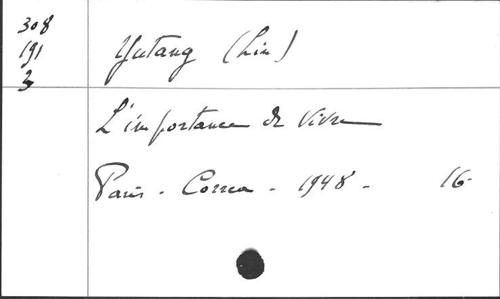 308
191
3
Yutang (Lin)
L'importance de Vivre
Paris - Correa - 1948 - 16-